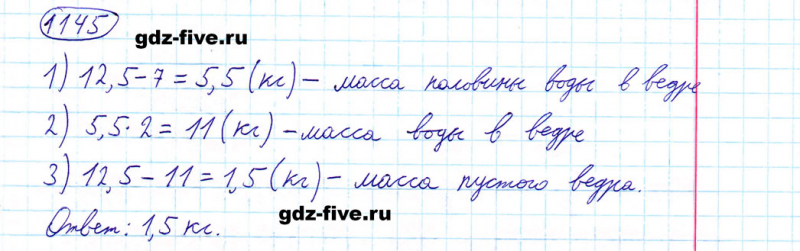 1145
gdz-five.ru
1) 12,5 - 7 = 5,5 (кг) - масса половины воды в ведре
2) 5,5 · 2 = 11 (кг) - масса воды в ведре
3) 12,5 - 11 = 1,5 (кг) - масса пустого ведра.
Ответ: 1,5 кг.
gdz-five.ru